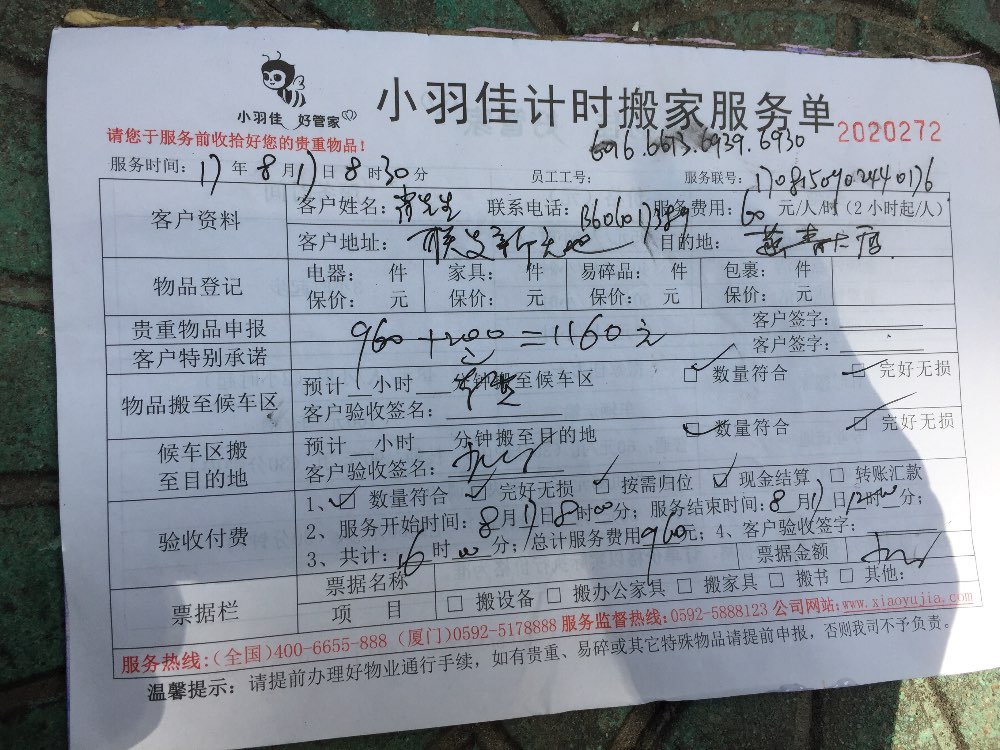 小羽佳 好管家
小羽佳计时搬家服务单
2020272
请您于服务前收拾好您的贵重物品!
6916.6613.6939.6930
服务时间: 17年8月17日8时30分 员工工号: 服务联号: 1708150702440176
客户资料
客户姓名: 先生 联系电话: 服务费用: 60元/人/时(2小时起/人)
客户地址: 联发新天地 目的地:
物品登记
电器: 件 家具: 件 易碎品: 件 包裹: 件
保价: 元 保价: 元 保价: 元 保价: 元
贵重物品申报 客户签字:
960+200=1160元
客户特别承诺 客户签字:
物品搬至候车区
预计__小时__分钟搬至候车区 ☑数量符合 ☑完好无损
客户验收签名:
候车区搬至目的地
预计__小时__分钟搬至目的地 ☑数量符合 ☑完好无损
客户验收签名:
验收付费
1、☑数量符合 ☑完好无损 ☑按需归位 ☑现金结算 □转账汇款
2、服务开始时间: 8月17日8时00分; 服务结束时间: 8月17日12时00分;
3、共计: 16时00分; 总计服务费用960元; 4、客户验收签字:
票据栏
票据名称 票据金额
项 目 □搬设备 □搬办公家具 □搬家具 □搬书 □其他:
服务热线:(全国)400-6655-888 (厦门)0592-5178888 服务监督热线:0592-5888123 公司网站:www.xiaoyujia.com
温馨提示: 请提前办理好物业通行手续, 如有贵重、易碎或其它特殊物品请提前申报, 否则我司不予负责。